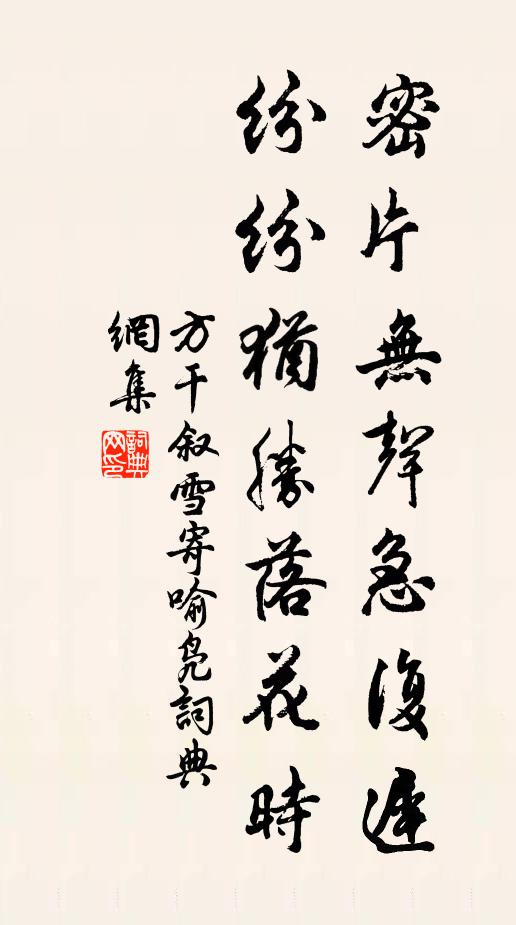 密片無聲急復遲
紛紛猶勝落花時
方干叙雪寄喻凫詞典
網集
詞典網印